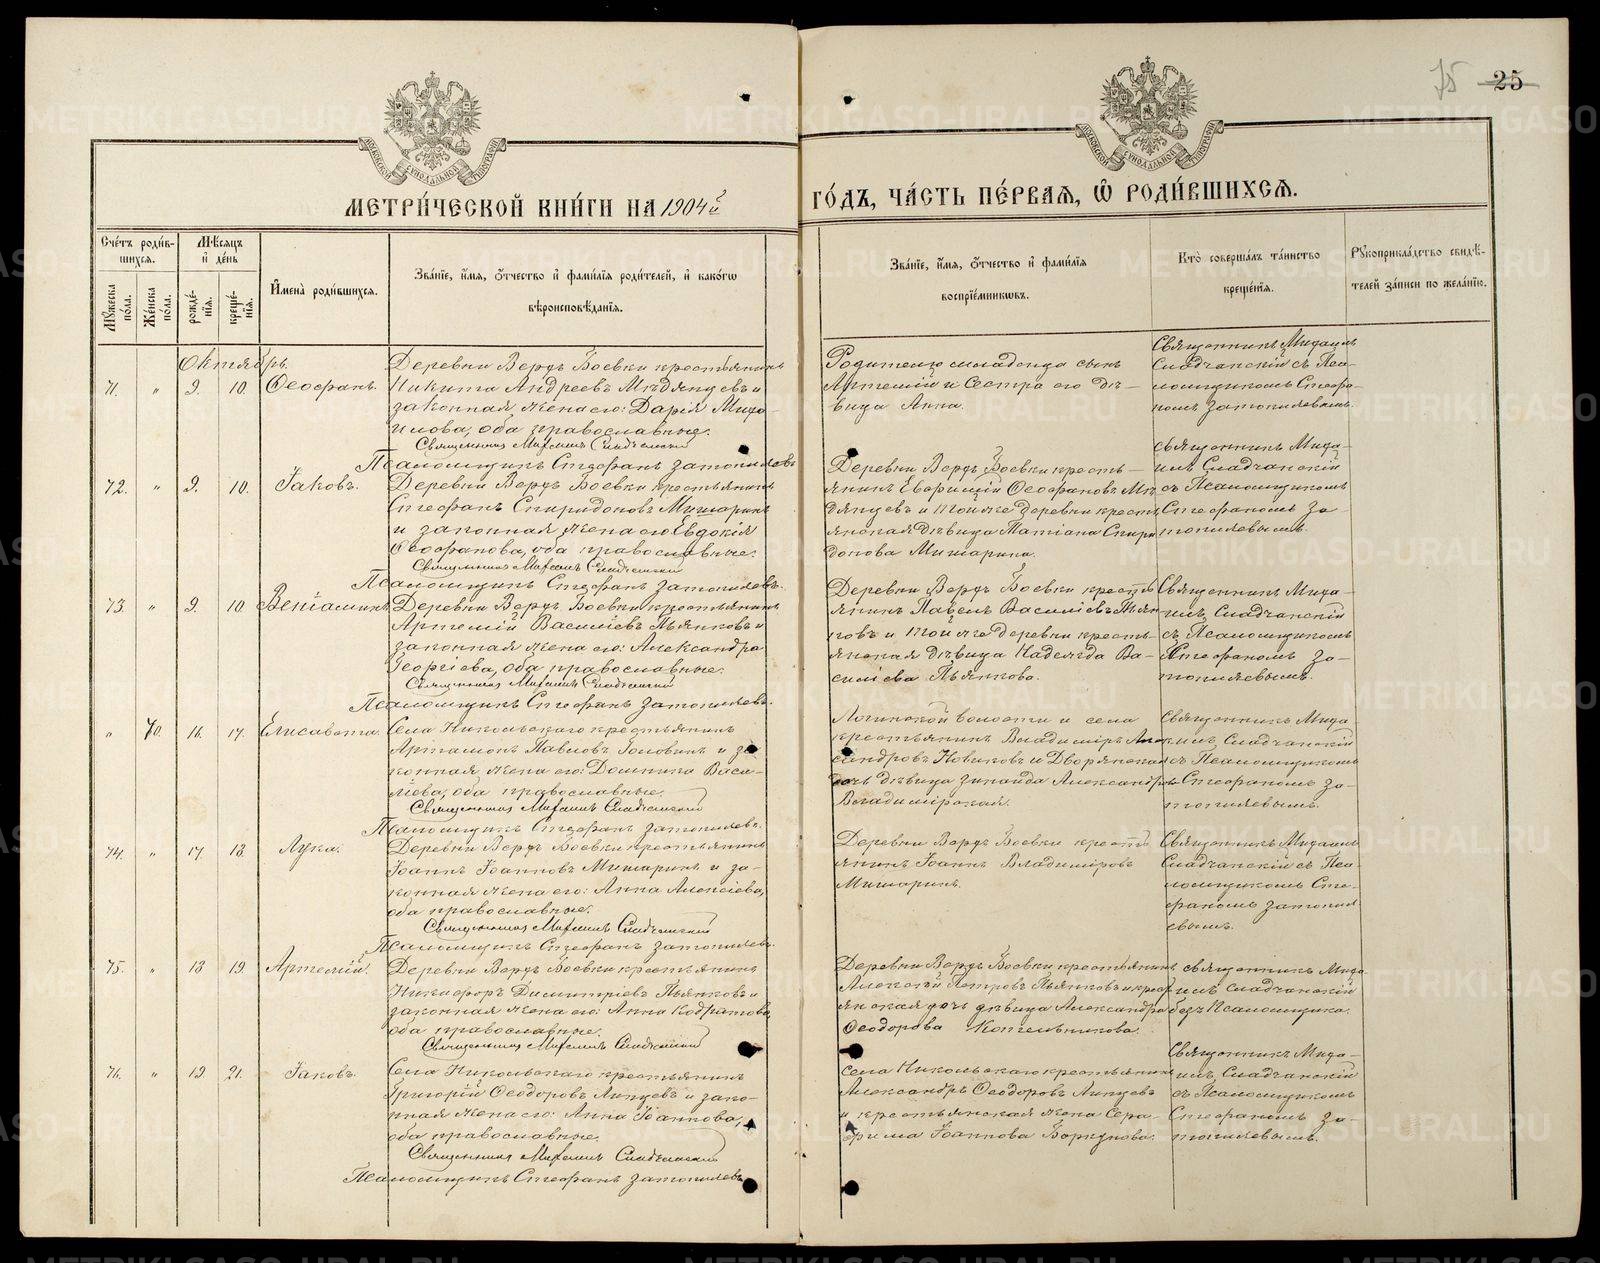 75 25
МОСКОВСКОЙ СѴНОДАЛЬНОЙ ТИПОГРАФІИ
МОСКОВСКОЙ СѴНОДАЛЬНОЙ ТИПОГРАФІИ
МЕТРИ́ЧЕСКОЙ КНИ́ГИ НА 1904й
ГО́ДЪ, ЧА́СТЬ ПЕ́РВАѦ, Ѡ҆ РОДИ́ВШИХСѦ.
Сче́тъ роди́в-
шихсѧ.
Мꙋ́жеска по́ла.
Же́нска по́ла.
Мѣ́сѧцъ
и҆ де́нь
рожде́-
нїѧ.
креще́-
нїѧ.
И҆мена̀ роди́вшихсѧ.
Зва́нїе, и҆́мѧ, ѻ҆́тчество и҆ фами́лїѧ роди́телей, и҆ како́гѡ
вѣроисповѣ́данїѧ.
Зва́нїе, и҆́мѧ, ѻ҆́тчество и҆ фами́лїѧ
воспрїе́мникѡвъ.
Кто̀ соверша́лъ та́инство
креще́нїѧ.
Рꙋкоприкла́дство свидѣ́-
телей за́писи по жела́нїю.
Октябрь.
71. " 9. 10. Ѳеофанъ.
Деревни Верхъ Боевки крестьянинъ
Никита Андреевъ Мѣдянцевъ и
законная жена его: Дарія Михаи-
илова, оба православные.
Священникъ Михаилъ Сладчанскій
Псаломщикъ Стефанъ Затопляевъ
Родителю младенца сынъ
Артемій и Сестра его дѣ-
вица Анна.
Священникъ Михаилъ
Сладчанскій съ Пса-
ломщикомъ Стефа-
номъ Затопляевымъ.
72. " 9. 10. Іаковъ.
Деревни Верхъ Боевки крестьянинъ
Стефанъ Спиридоновъ Мишаринъ
и законная жена его Евдокія
Ѳеофанова, оба православные.
Священникъ Михаилъ Сладчанскій
Псаломщикъ Стефанъ Затопляевъ.
Деревни Верхъ Боевки кресть-
янинъ Евѳимій Ѳеофановъ Мѣ-
дянцевъ и тойже деревни кресть
янская дѣвица Татіана Спири
донова Мишарина.
Священникъ Миха-
илъ Сладчанскій
съ Псаломщикомъ
Стефаномъ За-
топляевымъ.
73. " 9. 10. Веніаминъ.
Деревни Верхъ Боевки крестьянинъ
Артемій Василіевъ Пьянковъ и
законная жена его: Александра
Георгіева, оба православные.
Священникъ Михаилъ Сладчанскій
Псаломщикъ Стефанъ Затопляевъ.
Деревни Верхъ Боевки кресть
янинъ Павелъ Василіевъ Пьян
ковъ и тойже деревни кресть-
янская дѣвица Надежда Ва-
силіева Пьянкова.
Священникъ Миха-
илъ Сладчанскій
съ Псаломщикомъ
Стефаномъ За-
топляевымъ.
" 70. 16. 17. Елисавета.
Села Никольскаго крестьянинъ
Артамонъ Павловъ Головинъ и за
конная жена его: Домника Васи-
ліева, оба православные.
Священникъ Михаилъ Сладчанскій
Псаломщикъ Стефанъ Затопляевъ.
крестьянинъ Владиміръ Алек
сандровъ Новиковъ и Дворянская
дочь дѣвица Зинаида Александр
Владимірская.
Священникъ Миха-
илъ Сладчанскій
съ Псаломщикомъ
Стефаномъ За-
топляевымъ.
74. " 17. 18. Лука.
Деревни Верхъ Боевки крестьянинъ
Іоаннъ Іоанновъ Мишаринъ и за-
конная жена его: Анна Алексіева,
оба православные.
Священникъ Михаилъ Сладчанскій
Псаломщикъ Стефанъ Затопляевъ.
Деревни Верхъ Боевки кресть
янинъ Іоаннъ Владиміровъ
Мишаринъ.
Священникъ Михаилъ
Сладчанскій съ Пса-
ломщикомъ Сте-
фаномъ Затопля-
евымъ.
75. " 18 19. Артемій.
Деревни Верхъ Боевки крестьянинъ
Никифоръ Димитріевъ Пьянковъ и
законная жена его: Анна Кодратова,
оба православные.
Священникъ Михаилъ Сладчанскій
Деревни Верхъ Боевки крестьянинъ
Алексѣй Петровъ Пьянковъ и крест
янская дочь дѣвица Александра
Ѳеодорова Котельникова.
Священникъ Миха
илъ Сладчанскій
безъ Псаломщика.
76. " 19. 21. Іаковъ.
Села Никольскаго крестьянинъ
Григорій Ѳеодоровъ Липцевъ и зако-
нная жена его: Анна Іоаннова,
оба православные.
Священникъ Михаилъ Сладчанскій
Псаломщикъ Стефанъ Затопляевъ
Села Никольскаго крестьянинъ
Александръ Ѳеодоровъ Липцевъ
и крестьянская жена Сера-
фима Іоаннова
Священникъ Миха-
илъ Сладчанскій
съ Псаломщикомъ
Стефаномъ За-
топляевымъ.
METRIKI.GASO-URAL.RU